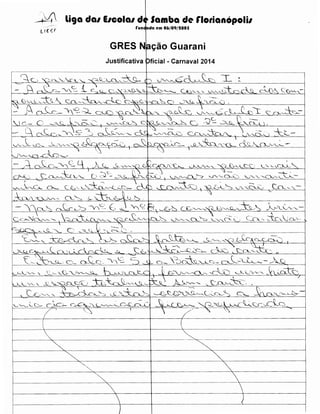 Liga das Escolas de Samba de Florianópolis
Fundada em 06/09/2002
LIESF
GRES Nação Guarani
Justificativa Oficial - Carnaval 2014
Ao passar perante o módulo I:
- A ala nº 1 se apresentou com metade dos com-
ponentes cantando apenas o refrão.
- A ala nº 2 ao passar pelo módulo I canta-
va o refrão, mas apenas o 2º refrão.
- A ala nº 3 além de não cantar, não ti-
nha empolgação, alegria, estava desani-
mada.
- A ala nº 4, se empolgara um pouco mais
ao cantar o 2º refrão, mas não manti-
nha a constância do canto, pois não can-
taram as estrofes
- Nas alas nº 6 e nº 8, os componentes brin-
cavam, batiam palmas mas não cantavam
sequer o refrão.
Em todas as alas faltou empolgação,
regularidade e constância do canto.
Entre a ala nº 5 e a Bateria abriu-se
um enorme buraco, formando um hiato,
um espaço totalmente sem canto.
Com todas estas ocorrências a harmo-
nia da agremiação ficou prejudicada